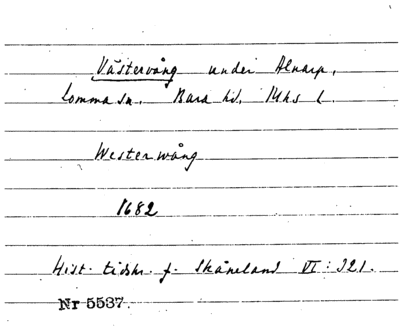 Västervång under Alnarp,
Lomma sn. Bara hd. Mhs l.
Westerwång
1682
Hist. tidskr. f. Skåneland VI: 321.
Nr 5537.